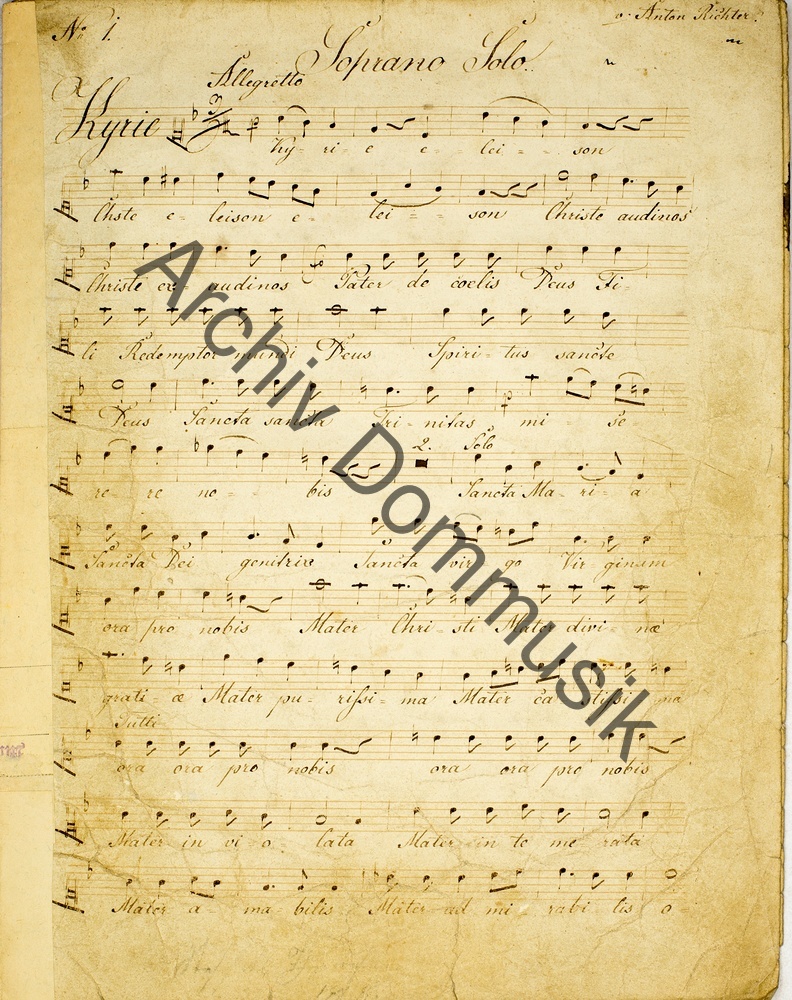 No 1.
v. Anton Richter.
Soprano Solo.
Allegretto
Kyrie
Ky- ri- e e- lei - - son
Chste e- leison e- lei - - son Christe audinos
Christe ex- audinos Pater de coelis Deus Fi-
li Redemptor mundi Deus Spiri- tus sancte
Deus Sancta sancta Tri- nitas mi - se-
2. Solo
re- re no- - bis Sancta Ma- ri- a
Sancta Dei genitrix Sancta vir- go Vir- ginum
ora pro nobis Mater Chri- sti Mater divi- næ
grati- æ Mater pu- rissi- ma Mater ca- stissi- ma
Tutti
ora ora pro nobis ora ora pro nobis
Mater in vi- o- lata Mater in te me rata
Mater a- ma bilis Mater ad mi- rabi lis o-
Archiv Dommusik